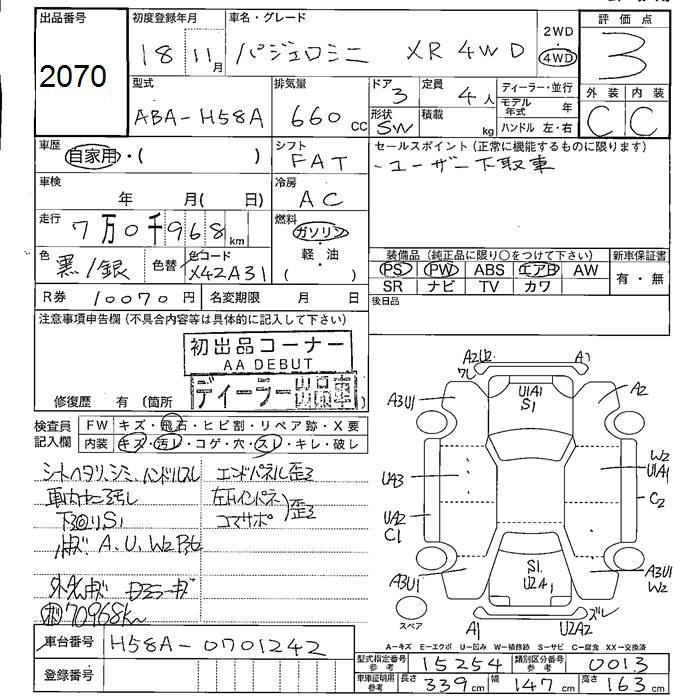 出品番号
2070
初度登録年月
18年 11月
車名・グレード
パジェロミニ XR 4WD
2WD
4WD
評価点
3
外装 内装
C C
型式
ABA-H58A
排気量
660 cc
ドア
3
形状
SW
定員
4人
積載
kg
ディーラー・並行
モデル年式 年
ハンドル 左・右
車歴
自家用・( )
シフト
FAT
セールスポイント (正常に機能するものに限ります)
・ユーザー下取車
車検
年 月( 日)
冷房
AC
走行
7万0千968km
燃料
ガソリン
・
軽・油
( )
色
黒/銀
色替
色コード
X42A31
装備品 (純正品に限り○をつけて下さい)
PS PW ABS エアB AW
SR ナビ TV カワ
新車保証書
有・無
R券 10070円
名変期限 月 日
後日品
注意事項申告欄 (不具合内容等は具体的に記入して下さい)
初出品コーナー
AA DEBUT
ディーラー出品車
修復歴 有 (箇所
検査員
記入欄
FW キズ・飛石・ヒビ割・リペア跡・X要
内装 キズ・汚レ・コゲ・穴・スレ・キレ・破レ
シートヘタリ、シミ、ハンドルスレ
車内ヤニ汚し
下廻りS1
A、U、W2
エンドパネル歪
コアサポ 歪
70968km
A2U2
A1
A3U1
A2
U1A1
S1
UA3
W2
U1A1
C2
UA2
C1
A3U1
S1
U2A1
A3U1
W2
スペア
A1
U2A2
ズレ
A=キズ E=エクボ U=凹み W=補修跡 S=サビ C=腐食 XX=交換済
車台番号 H58A-0701242
登録番号
型式指定番号
参考
15254
類別区分番号
参考
0013
車庫証明用
参考
長さ 339cm 幅 147cm 高さ 163cm